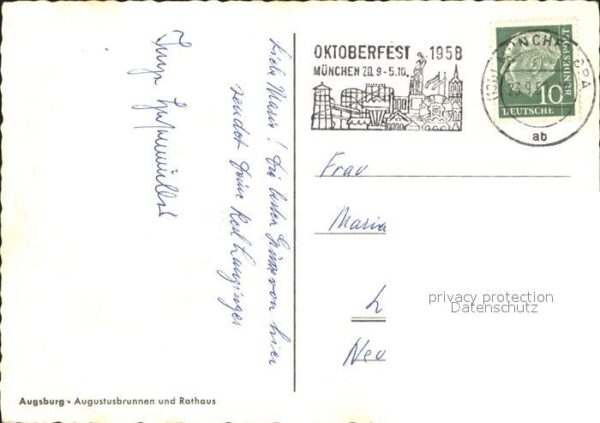 OKTOBERFEST 1958
MÜNCHEN 20.9.-5.10.
MÜNCHEN
23.9.
ab
10
DEUTSCHE
BUNDESPOST
Frau
Maria
L
Neu
privacy protection
Datenschutz
Liebe Maria! Die besten Grüsse von hier
sendet Deine
Inge
Augsburg • Augustusbrunnen und Rathaus